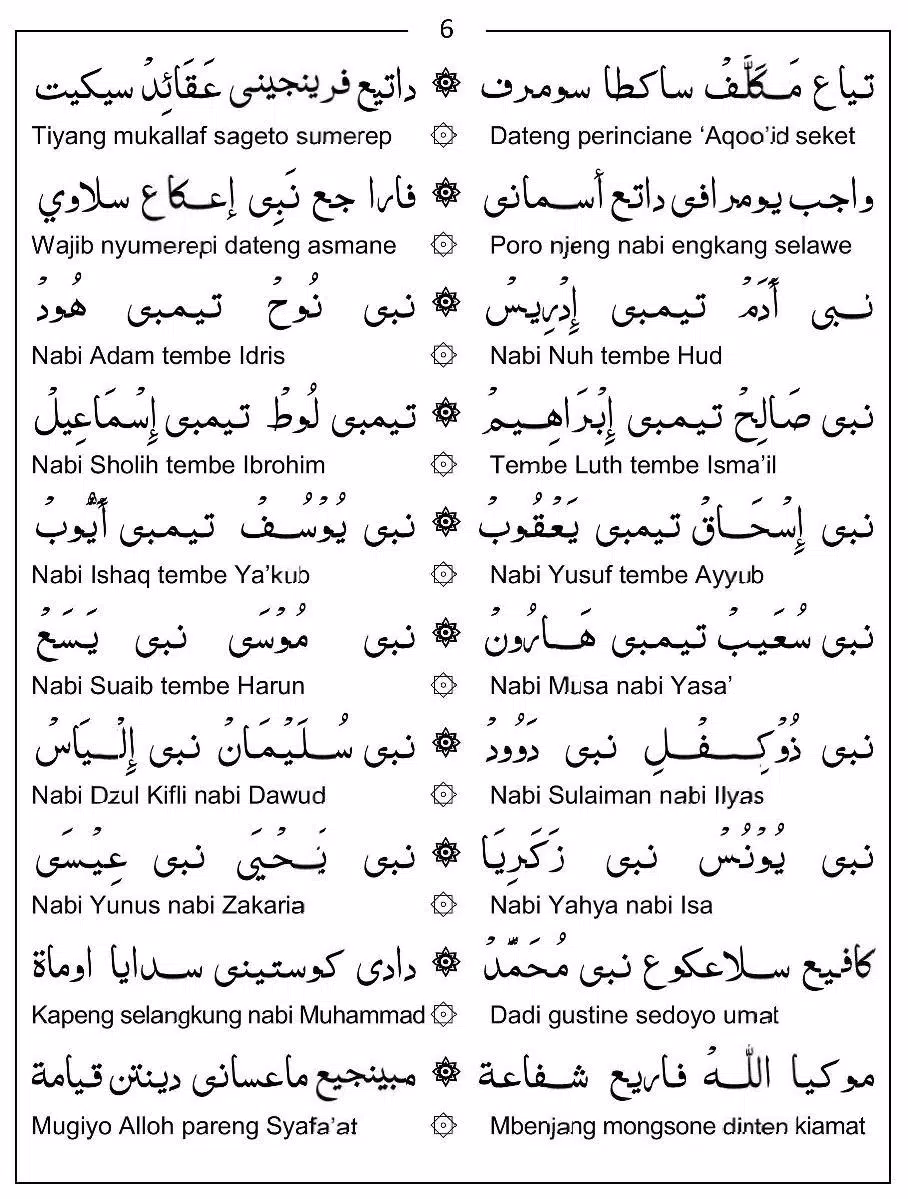 6
تياع مَكَلَّفْ ساكطا سومرف ۞ داتيع فرينجينى عَقَائِدْ سيكيت
Tiyang mukallaf sageto sumerep ۞ Dateng perinciane ‘Aqoo’id seket
واجب يومرافى داتع أسمانى ۞ فارا جع نَبِى إعكاع سلاوي
Wajib nyumerepi dateng asmane ۞ Poro njeng nabi engkang selawe
نبى أَدَمْ تيمبى إِدْرِيسْ ۞ نبى نُوحْ تيمبى هُودْ
Nabi Adam tembe Idris ۞ Nabi Nuh tembe Hud
نبى صَالِحْ تيمبى إِبْرَاهِيمْ ۞ تيمبى لُوطْ تيمبى إِسْمَاعِيلْ
Nabi Sholih tembe Ibrohim ۞ Tembe Luth tembe Isma’il
نبى إِسْحَاقْ تيمبى يَعْقُوبْ ۞ نبى يُوْسُفْ تيمبى أَيُّوبْ
Nabi Ishaq tembe Ya’kub ۞ Nabi Yusuf tembe Ayyub
نبى سُعَيبْ تيمبى هَارُونْ ۞ نبى مُوْسَى نبى يَسَعْ
Nabi Suaib tembe Harun ۞ Nabi Musa nabi Yasa’
نبى ذُوْكِفْلِ نبى دَوُودْ ۞ نبى سُلَيْمَانْ نبى إِلْيَاسْ
Nabi Dzul Kifli nabi Dawud ۞ Nabi Sulaiman nabi Ilyas
نبى يُوْنُسْ نبى زَكَرِيَا ۞ نبى يَحْيَى نبى عِيْسَى
Nabi Yunus nabi Zakaria ۞ Nabi Yahya nabi Isa
كافيع سلاعكوع نبى مُحَمَّدْ ۞ دادى كوستينى سدايا اوماة
Kapeng selangkung nabi Muhammad ۞ Dadi gustine sedoyo umat
موكيا اللّٰهْ فاريع شفاعة ۞ مبينجيع ماعسانى دينتن قيامة
Mugiyo Alloh pareng Syafa’at ۞ Mbenjang mongsone dinten kiamat